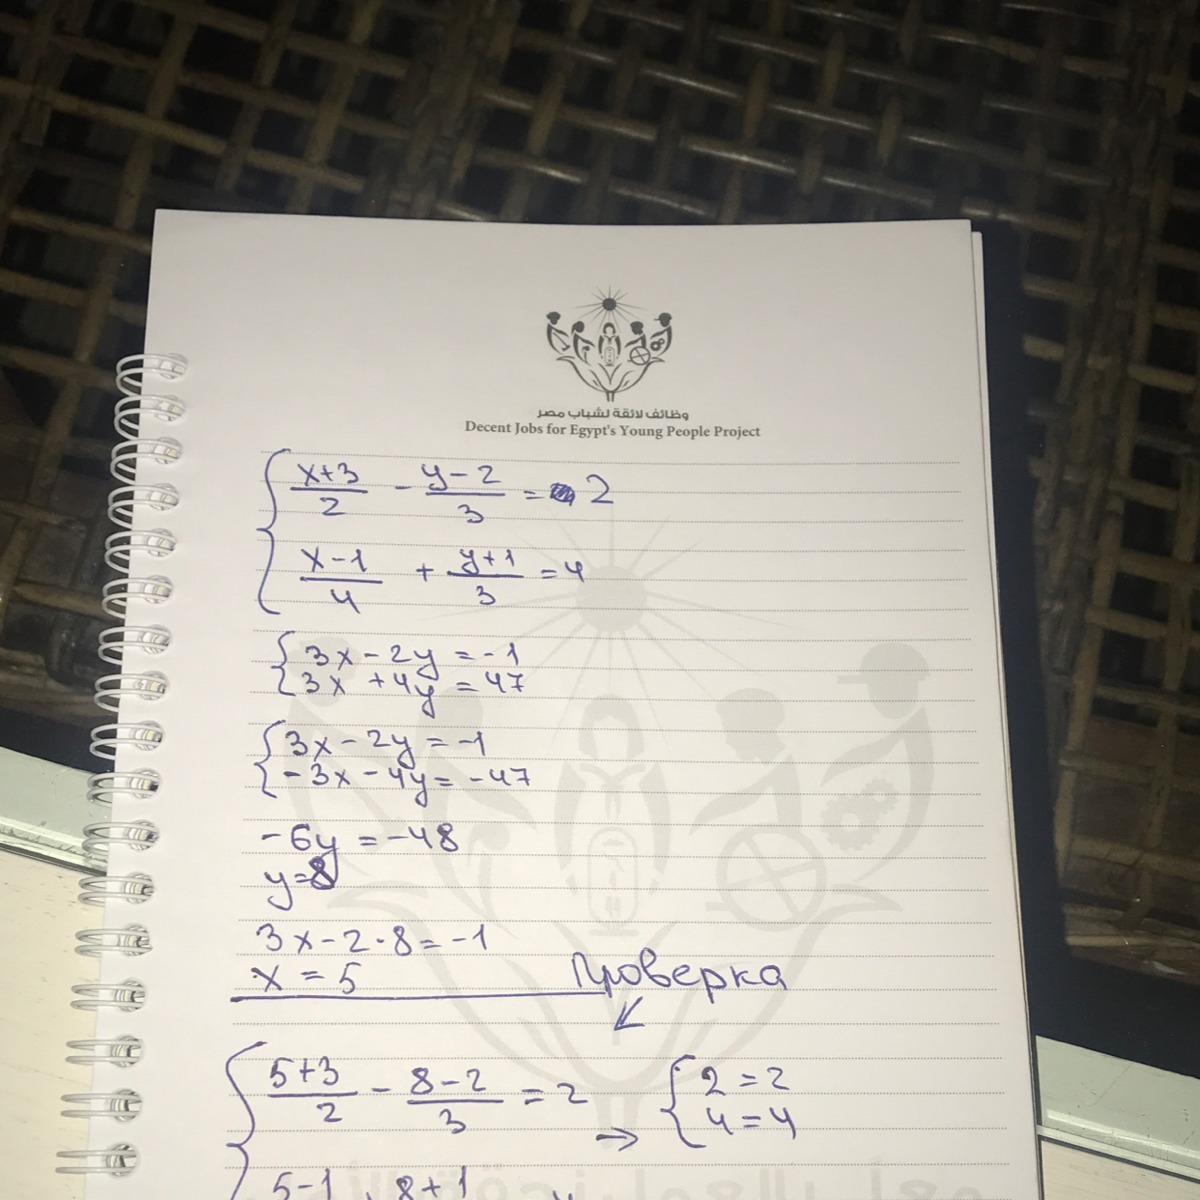 وظائف لائقة لشباب مصر
Decent Jobs for Egypt's Young People Project
x+3/2 - y-2/3 = 2
x-1/4 + y+1/3 = 4
3x - 2y = -1
3x + 4y = 47
3x - 2y = -1
-3x - 4y = -47
-6y = -48
y=8
3x - 2·8 = -1
x = 5
Проверка
5+3/2 - 8-2/3 = 2 → 2 = 2
4 = 4
5-1 8+1